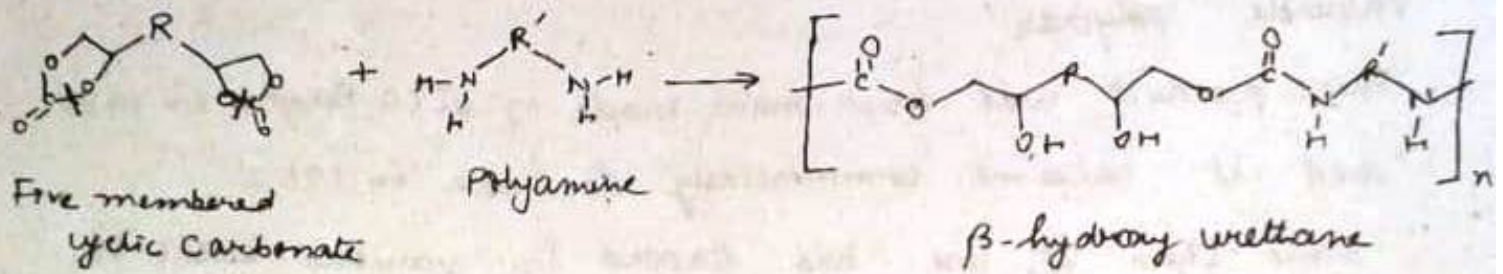 R
O
O
O
O
O
O
+
R'
H-N
N-H
H
H
O
C
O
R
OH
OH
O
O
C
N
H
R'
N
H
n
Five membered
cyclic Carbonate
Polyamine
β-hydroxy urethane